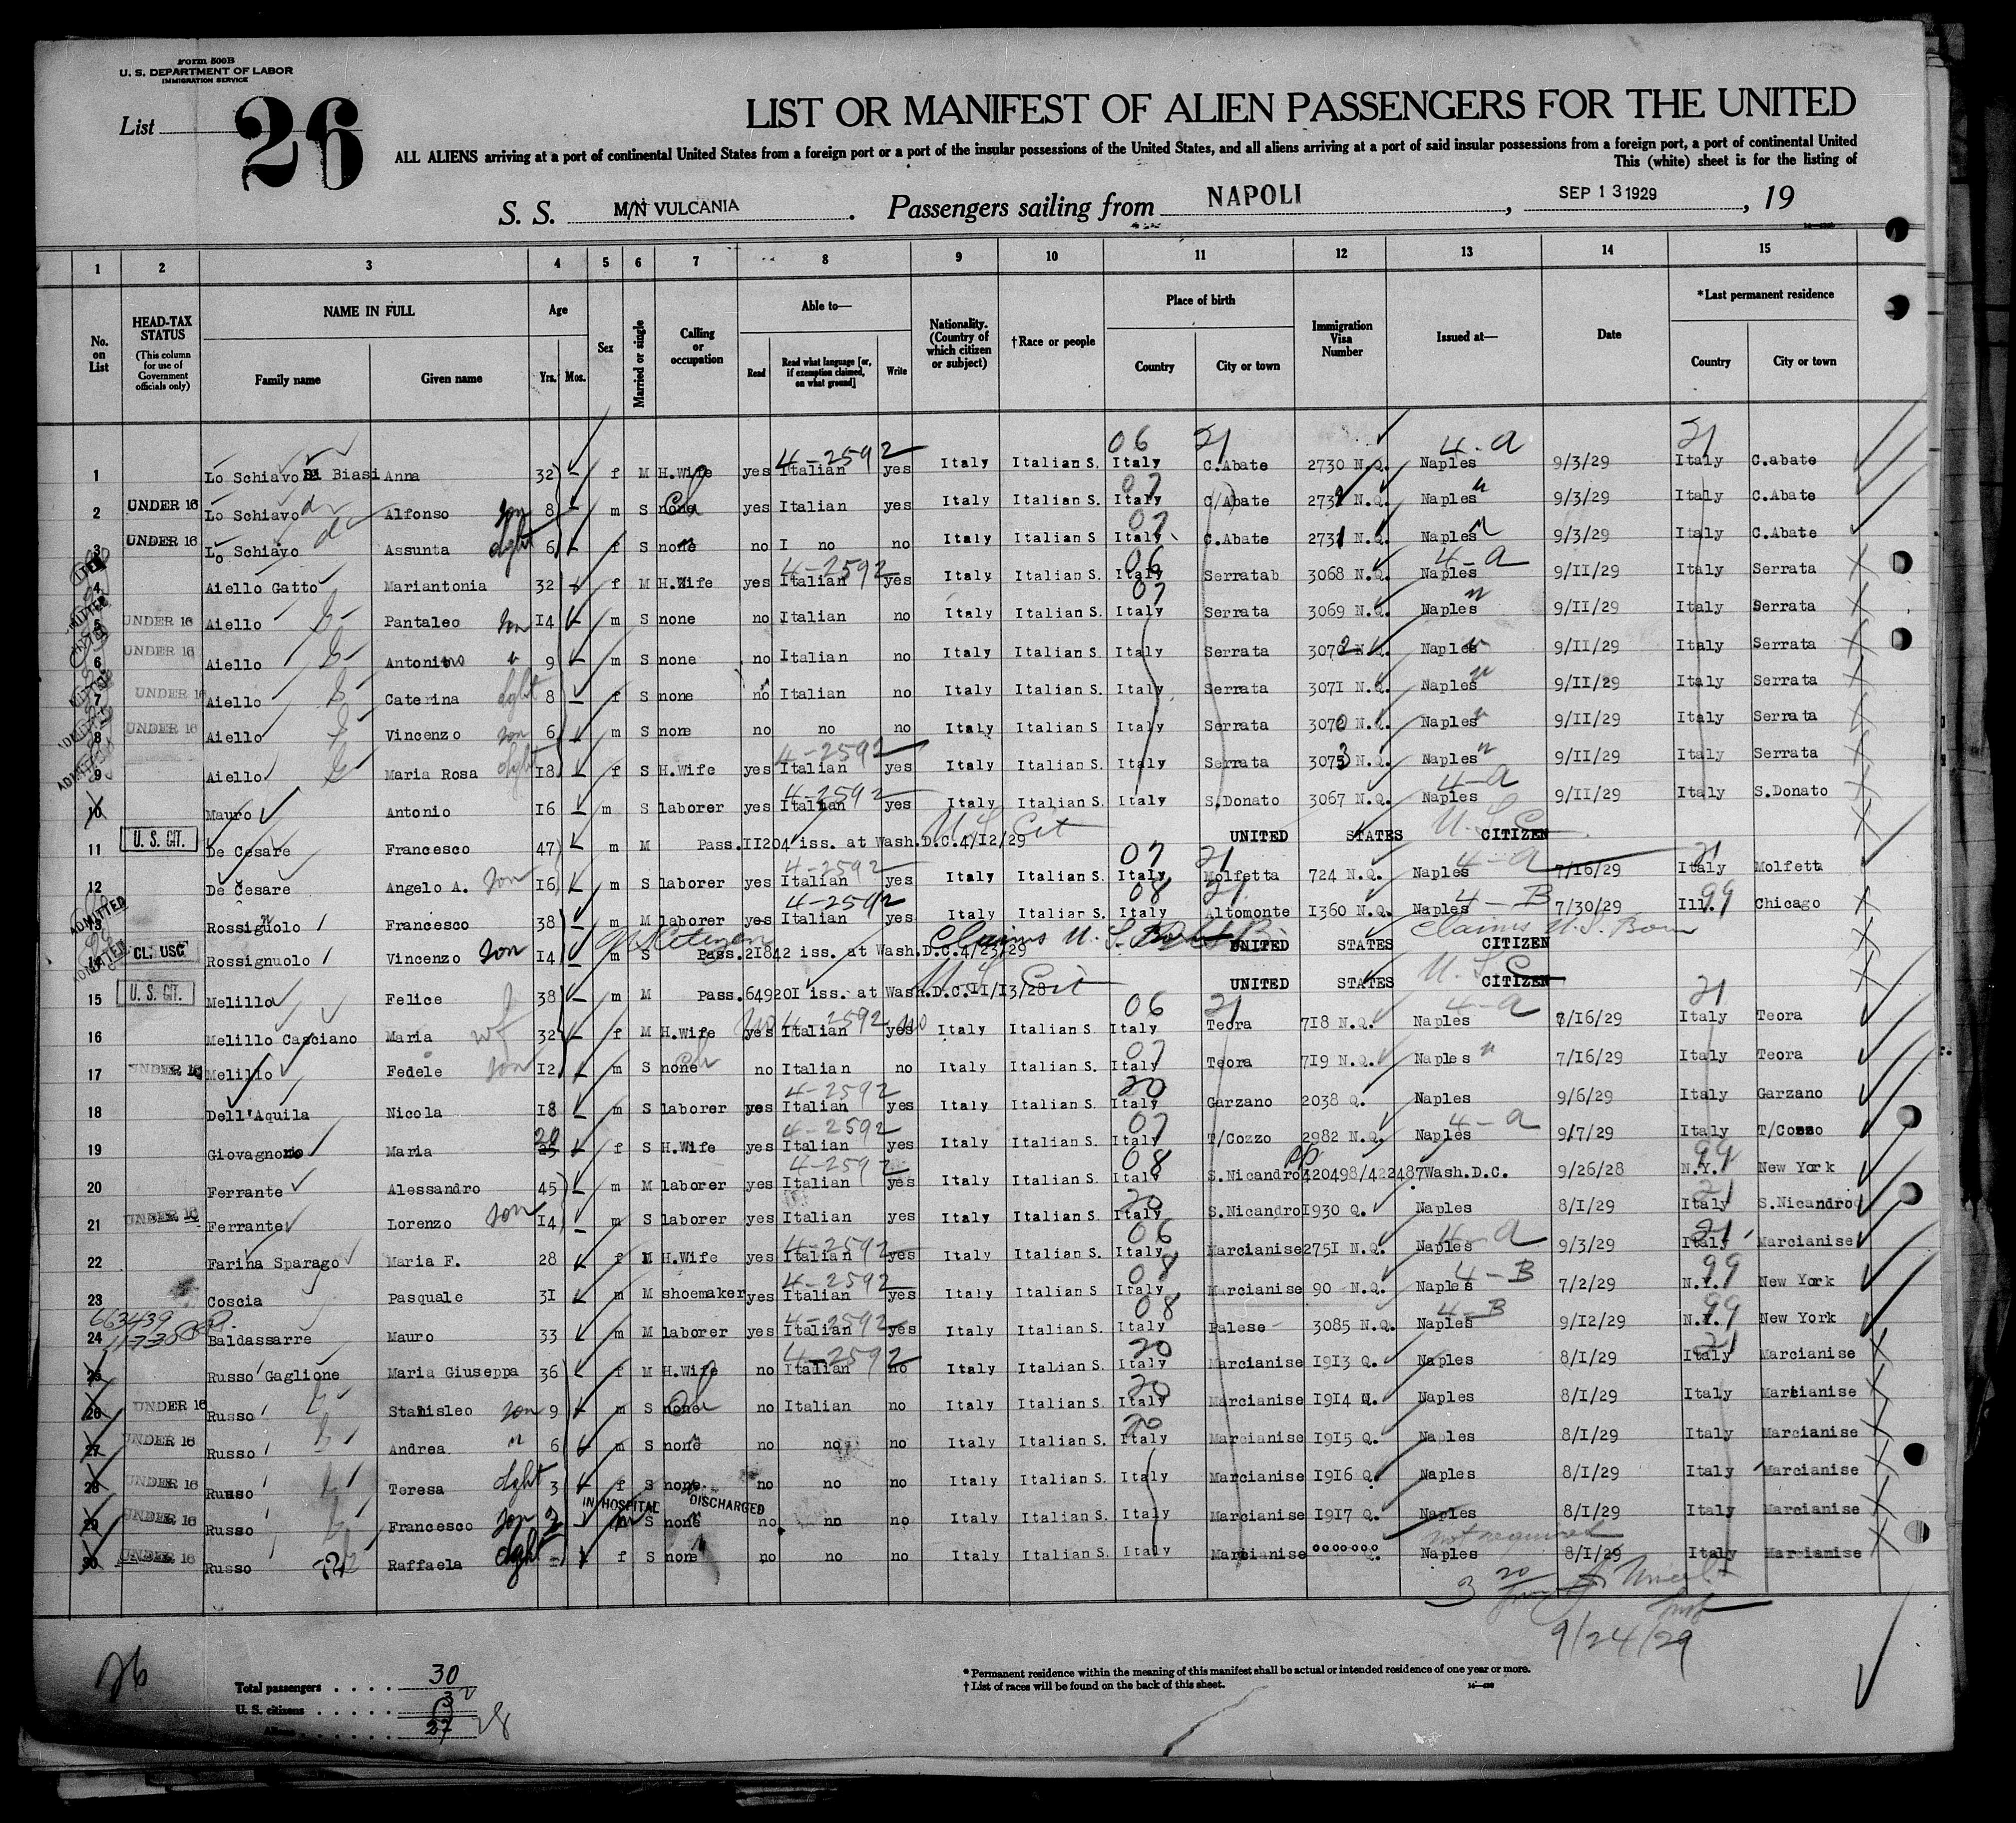 Form 500B
U. S. DEPARTMENT OF LABOR
IMMIGRATION SERVICE
List 26
LIST OR MANIFEST OF ALIEN PASSENGERS FOR THE UNITED
ALL ALIENS arriving at a port of continental United States from a foreign port or a port of the insular possessions of the United States, and all aliens arriving at a port of said insular possessions from a foreign port, a port of continental United
This (white) sheet is for the listing of
S. S. M/N VULCANIA . Passengers sailing from NAPOLI , SEP 13 1929 , 19
1 2 3 4 5 6 7 8 9 10 11 12 13 14 15
No. on List HEAD-TAX STATUS (This column for use of Government officials only) NAME IN FULL Family name Given name Age Yrs. Mos. Sex Married or single Calling or occupation Able to— Read Read what language [or, if exemption claimed, on what ground] Write Nationality. (Country of which citizen or subject) †Race or people Place of birth Country City or town Immigration Visa Number Issued at— Date *Last permanent residence Country City or town
4-2592 06 21 4-a 21
1 Lo Schiavo Di Biasi Anna 32 - f M H.Wife yes Italian yes Italy Italian S. Italy C.Abate 2730 N.Q. Naples 9/3/29 Italy C.abate
2 UNDER 16 Lo Schiavo Alfonso son 8 - m S none yes Italian yes Italy Italian S. Italy C/Abate 2732 N.Q. Naples 9/3/29 Italy C.Abate
3 UNDER 16 Lo Schiavo Assunta dght 6 - f S none no I no no Italy Italian S Italy C.Abate 2731 N.Q. Naples 9/3/29 Italy C.Abate
4-2592 06 4-a
4 Aiello Gatto Mariantonia 32 - f M H.Wife yes Italian yes Italy Italian S. Italy Serratab 3068 N.Q. Naples 9/11/29 Italy Serrata
5 UNDER 16 Aiello Pantaleo son 14 - m S none no Italian no Italy Italian S. Italy Serrata 3069 N.Q. Naples 9/11/29 Italy Serrata
6 UNDER 16 Aiello Antonino 9 - m S none no Italian no Italy Italian S. Italy Serrata 3072 N.Q. Naples 9/11/29 Italy Serrata
7 UNDER 16 Aiello Caterina dght 8 - f S none no Italian no Italy Italian S. Italy Serrata 3071 N.Q. Naples 9/11/29 Italy Serrata
8 UNDER 16 Aiello Vincenzo son 6 - m S none no no no Italy Italian S. Italy Serrata 3070 N.Q. Naples 9/11/29 Italy Serrata
4-2592
9 Aiello Maria Rosa dght 18 - f S H.Wife yes Italian yes Italy Italian S. Italy Serrata 3073 N.Q. Naples 9/11/29 Italy Serrata
4-2592 4-a
10 Mauro Antonio 16 - m S laborer yes Italian yes Italy Italian S. Italy S.Donato 3067 N.Q. Naples 9/11/29 Italy S.Donato
11 U. S. CIT. De Cesare Francesco 47 - m M Pass.11204 iss. at Wash.D.C.4/12/29 U.S. Cit UNITED STATES CITIZEN
4-2592 07 21 4-a 21
12 De Cesare Angelo A. son 16 - m S laborer yes Italian yes Italy Italian S. Italy Molfetta 724 N.Q. Naples 7/16/29 Italy Molfetta
4-2592 08 21 4-B 99
13 ADMITTED Rossignuolo Francesco 38 - m M laborer yes Italian yes Italy Italian S. Italy Altomonte 1360 N.Q. Naples 7/30/29 Ill. Chicago
14 ADMITTED CL. USC Rossignuolo Vincenzo son 14 - m S US Citizen Pass.21842 iss. at Wash.D.C.4/23/29 Claims U.S. UNITED STATES CITIZEN Claims U.S. Born
15 U. S. CIT. Melillo Felice 38 - m M Pass.649201 iss. at Wash.D.C.11/13/28 U.S. Cit UNITED STATES CITIZEN
4-2592 06 21 4-a 21
16 Melillo Casciano Maria wf 32 - f M H.Wife no yes Italian yes no Italy Italian S. Italy Teora 718 N.Q. Naples 7/16/29 Italy Teora
07
17 UNDER 16 Melillo Fedele son 12 - m S none no Italian no Italy Italian S. Italy Teora 719 N.Q. Naples 7/16/29 Italy Teora
4-2592 20
18 Dell'Aquila Nicola 18 - m S laborer yes Italian yes Italy Italian S. Italy Garzano 2038 Q. Naples 9/6/29 Italy Garzano
4-2592 07 4-a
19 Giovagnono Maria 25 - f S H.Wife yes Italian yes Italy Italian S. Italy T/Cozzo 2982 N.Q. Naples 9/7/29 Italy T/Cozzo
4-2592 08 99
20 Ferrante Alessandro 45 - m M laborer yes Italian yes Italy Italian S. Italy S.Nicandro 420498/422487 Wash.D.C. 9/26/28 N.Y. New York
20 21
21 UNDER 16 Ferrante Lorenzo son 14 - m S laborer yes Italian yes Italy Italian S. Italy S.Nicandro 1930 Q. Naples 8/1/29 Italy S.Nicandro
4-2592 06 4-a 21
22 Farina Sparago Maria F. 28 - f M H.Wife yes Italian yes Italy Italian S. Italy Marcianise 2751 N.Q. Naples 9/3/29 Italy Marcianise
4-2592 08 4-B 99
23 Coscia Pasquale 31 - m M shoemaker yes Italian yes Italy Italian S. Italy Marcianise 90 N.Q. Naples 7/2/29 N.Y. New York
663439 4-2592 08 4-B 99
24 11-7-30 Baldassarre Mauro 33 - m M laborer yes Italian yes Italy Italian S. Italy Palese 3085 N.Q. Naples 9/12/29 N.Y. New York
4-2592 20 21
25 Russo Gaglione Maria Giuseppa 36 - f M H.Wife no Italian no Italy Italian S. Italy Marcianise 1913 Q. Naples 8/1/29 Italy Marcianise
20
26 UNDER 16 Russo Stanisleo son 9 - m S none no Italian no Italy Italian S. Italy Marcianise 1914 Q. Naples 8/1/29 Italy Marcianise
20
27 UNDER 16 Russo Andrea 6 - m S none no no no Italy Italian S. Italy Marcianise 1915 Q. Naples 8/1/29 Italy Marcianise
28 UNDER 16 Russo Teresa dght 3 - f S none no no no Italy Italian S. Italy Marcianise 1916 Q. Naples 8/1/29 Italy Marcianise
IN HOSPITAL DISCHARGED
29 UNDER 16 Russo Francesco son 2 - m S none no no no Italy Italian S. Italy Marcianise 1917 Q. Naples 8/1/29 Italy Marcianise
not required
30 UNDER 16 Russo Raffaela dght - f S none no no no Italy Italian S. Italy Marcianise Q. Naples 8/1/29 Italy Marcianise
9/24/29
26
Total passengers . . . . . 30
U. S. citizens . . . . . 3
Aliens . . . . . 27 28
* Permanent residence within the meaning of this manifest shall be actual or intended residence of one year or more.
† List of races will be found on the back of this sheet.